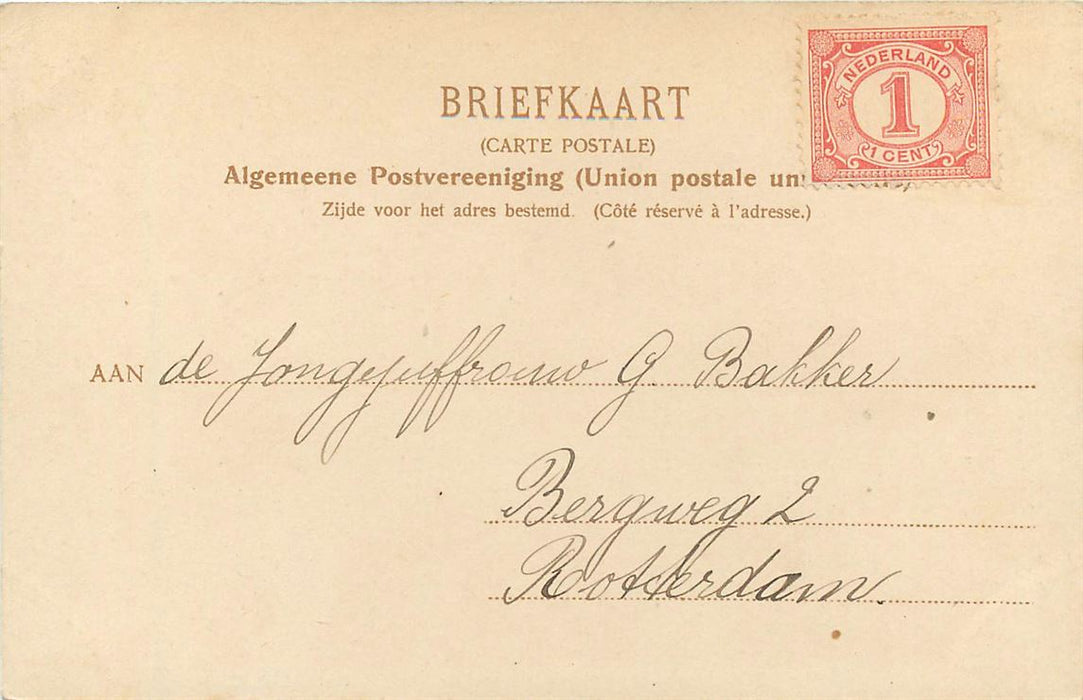 NEDERLAND
1
1 CENT
BRIEFKAART
(CARTE POSTALE)
Algemeene Postvereeniging (Union postale
Zijde voor het adres bestemd. (Côté réservé à l'adresse.)
AAN de Jongejuffrouw G. Bakker
Bergweg 2
Rotterdam.